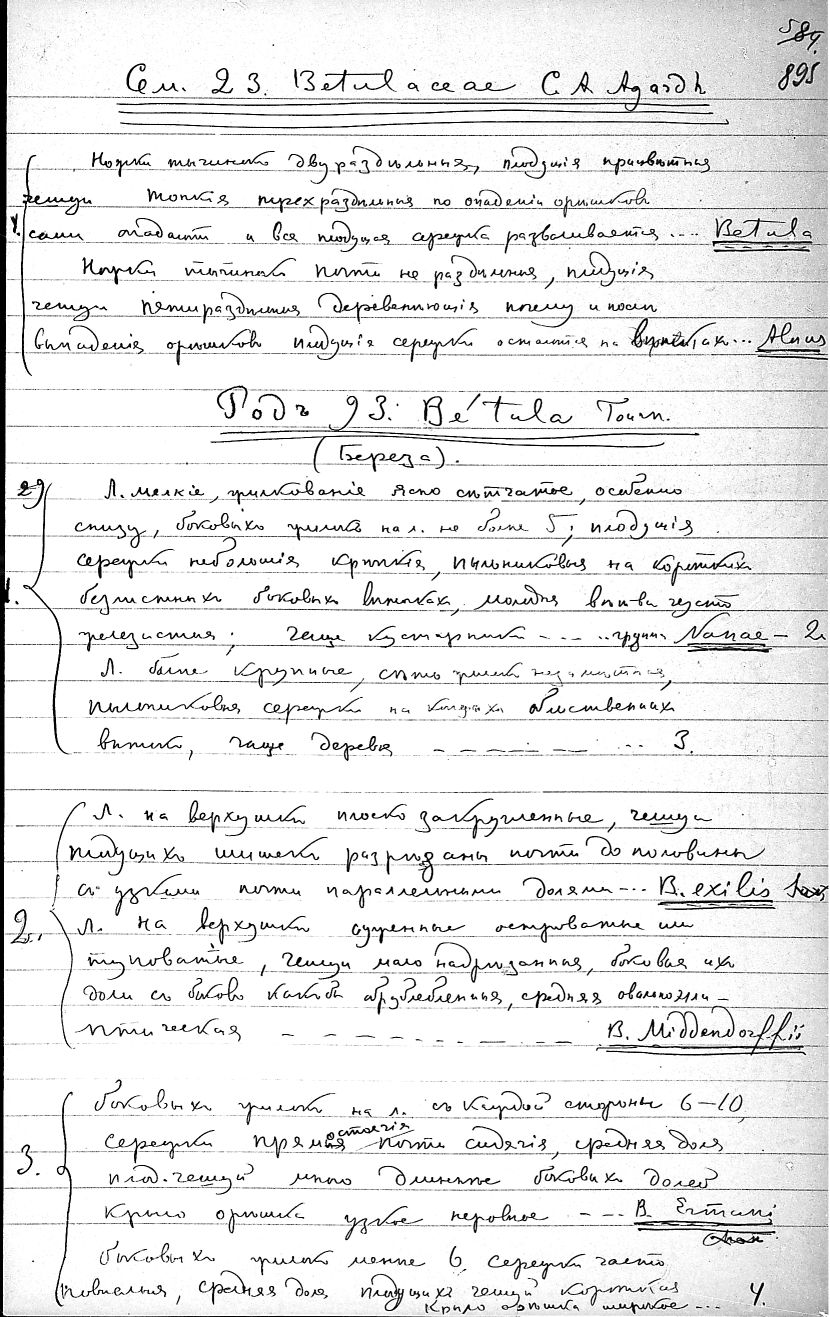 584.
895
Сем. 23. Betulaceae C. A. Agardh
Ножки тычинокъ двураздѣльныя, плодущія прицвѣтныя
чешуи тонкія трехраздѣльныя по опаденіи орѣшковъ
1. сами опадаютъ и вся плодущая сережка разваливается ... Betula
Ножки тычинокъ почти не раздѣльныя, плодущія
чешуи пятираздѣльныя деревянѣющія почему и послѣ
выпаденія орѣшковъ плодущія сережки остаются на вѣткахъ... Alnus
Родъ 93. Bétula Tourn.
(Береза).
29) Л. мелкіе, жилкованіе ясно сѣтчатое, особенно
снизу, боковыхъ жилокъ на л. не болѣе 5; плодущія
1. сережки небольшія крѣпкія, пыльниковыя на короткихъ
безлистныхъ боковыхъ вѣточкахъ, молодыя вѣтви часто
железистыя; чаще кустарники - - - .. группа Nanae - 2.
Л. болѣе крупные, сѣть жилокъ незамѣтная,
пыльниковыя сережки на концахъ облиственныхъ
вѣтокъ, чаще деревья - - - - - - ... 3.
Л. на верхушкѣ плоско закругленные, чешуи
плодущихъ шишекъ разрѣзаны почти до половины
съ узкими почти параллельными долями ... B. exilis
2. Л. на верхушкѣ суженные островатые или
туповатые, чешуи мало надрѣзанныя, боковыя ихъ
доли съ боковъ какъ бы обрубленныя, средняя овально эли-
птическая - - - - - - - - B. Middendorffii
боковыхъ жилокъ на л. съ каждой стороны 6-10,
сережки прямо стоячія почти сидячія, средняя доля
3. плод. чешуй много длиннѣе боковыхъ долей
крыло орѣшка узкое неровное - - .. B. Ermani
Cham
боковыхъ жилокъ менѣе 6, сережки часто
повислыя, средняя доля плодущихъ чешуй короткая
крыло орѣшка широкое ... 4.